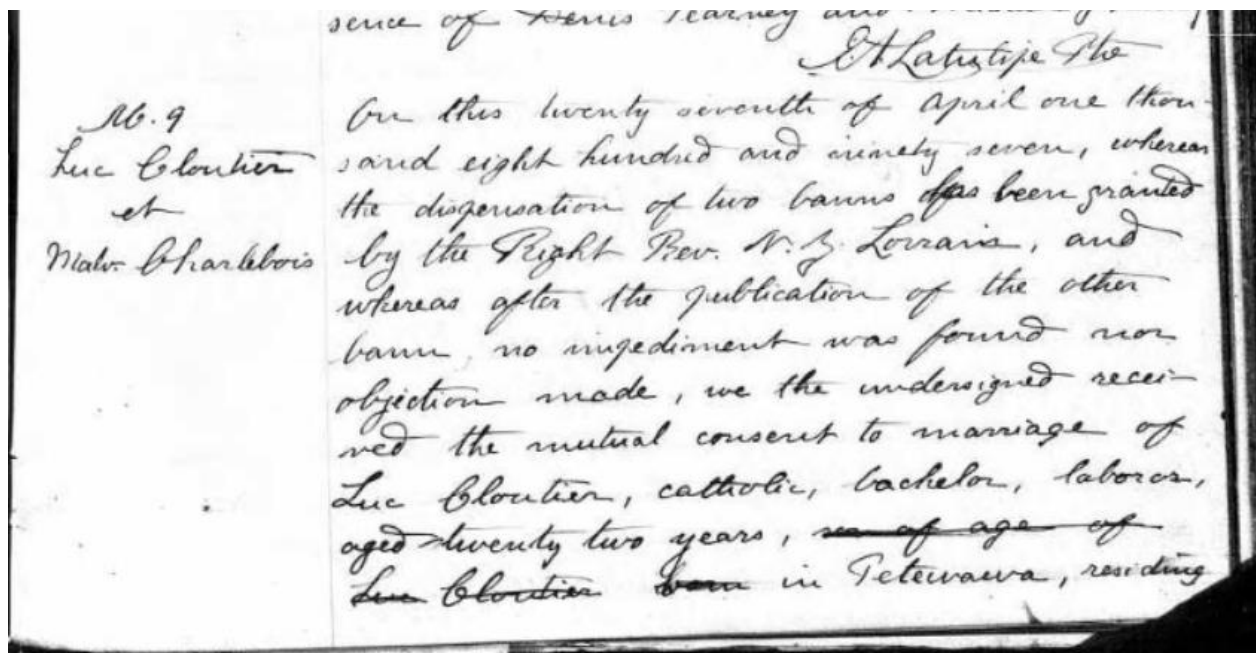 sence of Denis Tearney and
M. 9
Luc Cloutier
et
Malv. Charlebois
On this twenty seventh of April one thou-
sand eight hundred and ninety seven, whereas
the dispensation of two banns has been granted
by the Right Rev. N. Z. Lorrain, and
whereas after the publication of the other
bann, no impediment was found nor
objection made, we the undersigned recei-
ved the mutual consent to marriage of
Luc Cloutier, catholic, bachelor, laboror,
aged twenty two years, son of age of
Luc Cloutier born in Petewawa, residing